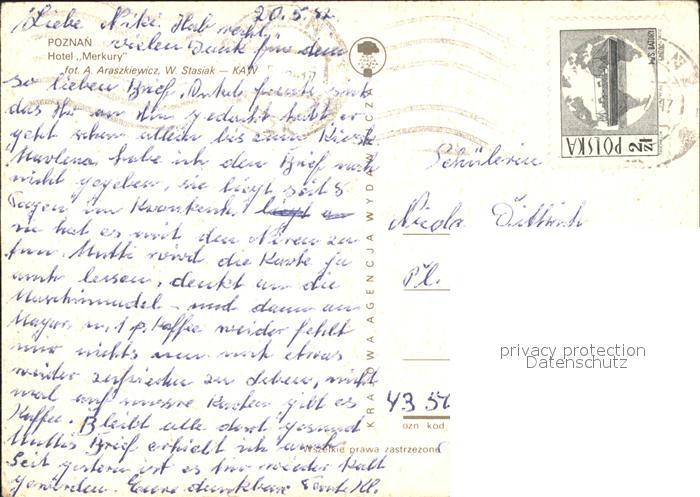 20.5.82
Liebe Niki. Hab recht
vielen Dank für den
POZNAŃ
Hotel „Merkury"
fot. A. Araszkiewicz, W. Stasiak — KAW
so lieben Brief, Onkel freute sich
das Ihr an ihn gedacht habt, er
geht schon allein bis zum Kiosk
Marlena habe ich den Brief noch
nicht gegeben, sie liegt seit 8
Tagen im Krankenh. liegt
sie hat es mit den Nieren zu
tun. Mutti wird die Karte ja
auch lessen, denkt an die
und dann an
1 p. Kaffee weider fehlt
mir nichts um noch etwas
weider zufrieden zu leben, nicht
mal auf unsere Karten gibt es
Kaffee. Bleibt alle dort gesund
Muttis Brief erhielt ich auch
Seit gestern ist es hier wieder kalt
geworden. Eure dankbare Tante Kl.
KRAJOWA AGENCJA WYDAWNICZA
M/S BATORY
POLSKA
2 ZŁ
Schülerin
Nicola Dittrich
Pl.
43 54
ozn kod
Wszelkie prawa zastrzeżone
privacy protection
Datenschutz